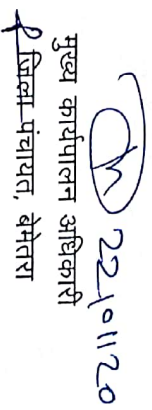 22/01/20
मुख्य कार्यपालन अधिकारी
जिला पंचायत, बेमेतरा